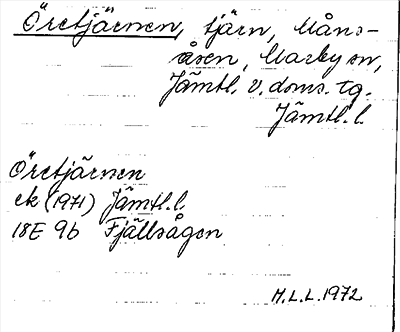 Öretjärnen, tjärn, Måns-
åsen, Marby sn,
Jämtl. v. doms. tg.
Jämtl. l.
Öretjärnen
ek (1971) Jämtl. l.
18E 9b Fjällsågen
H.L.L. 1972